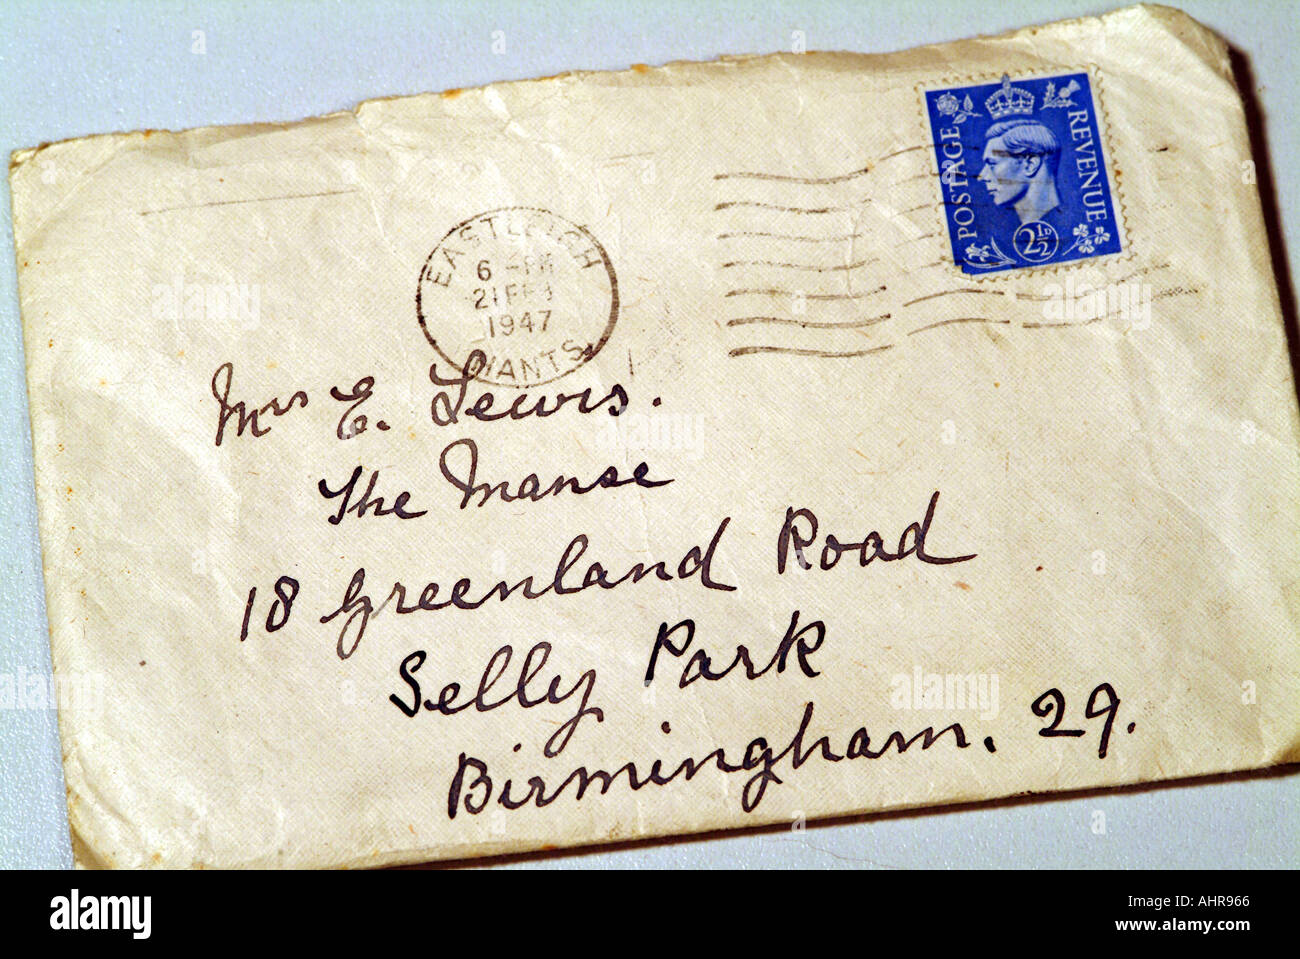 POSTAGE
REVENUE
2½D
EASTLEIGH
6 - PM
21 FEB
1947
HANTS.
Mrs E. Lewis.
The Manse
18 Greenland Road
Selly Park
Birmingham. 29.
alamy
alamy
Image ID: AHR966
www.alamy.com